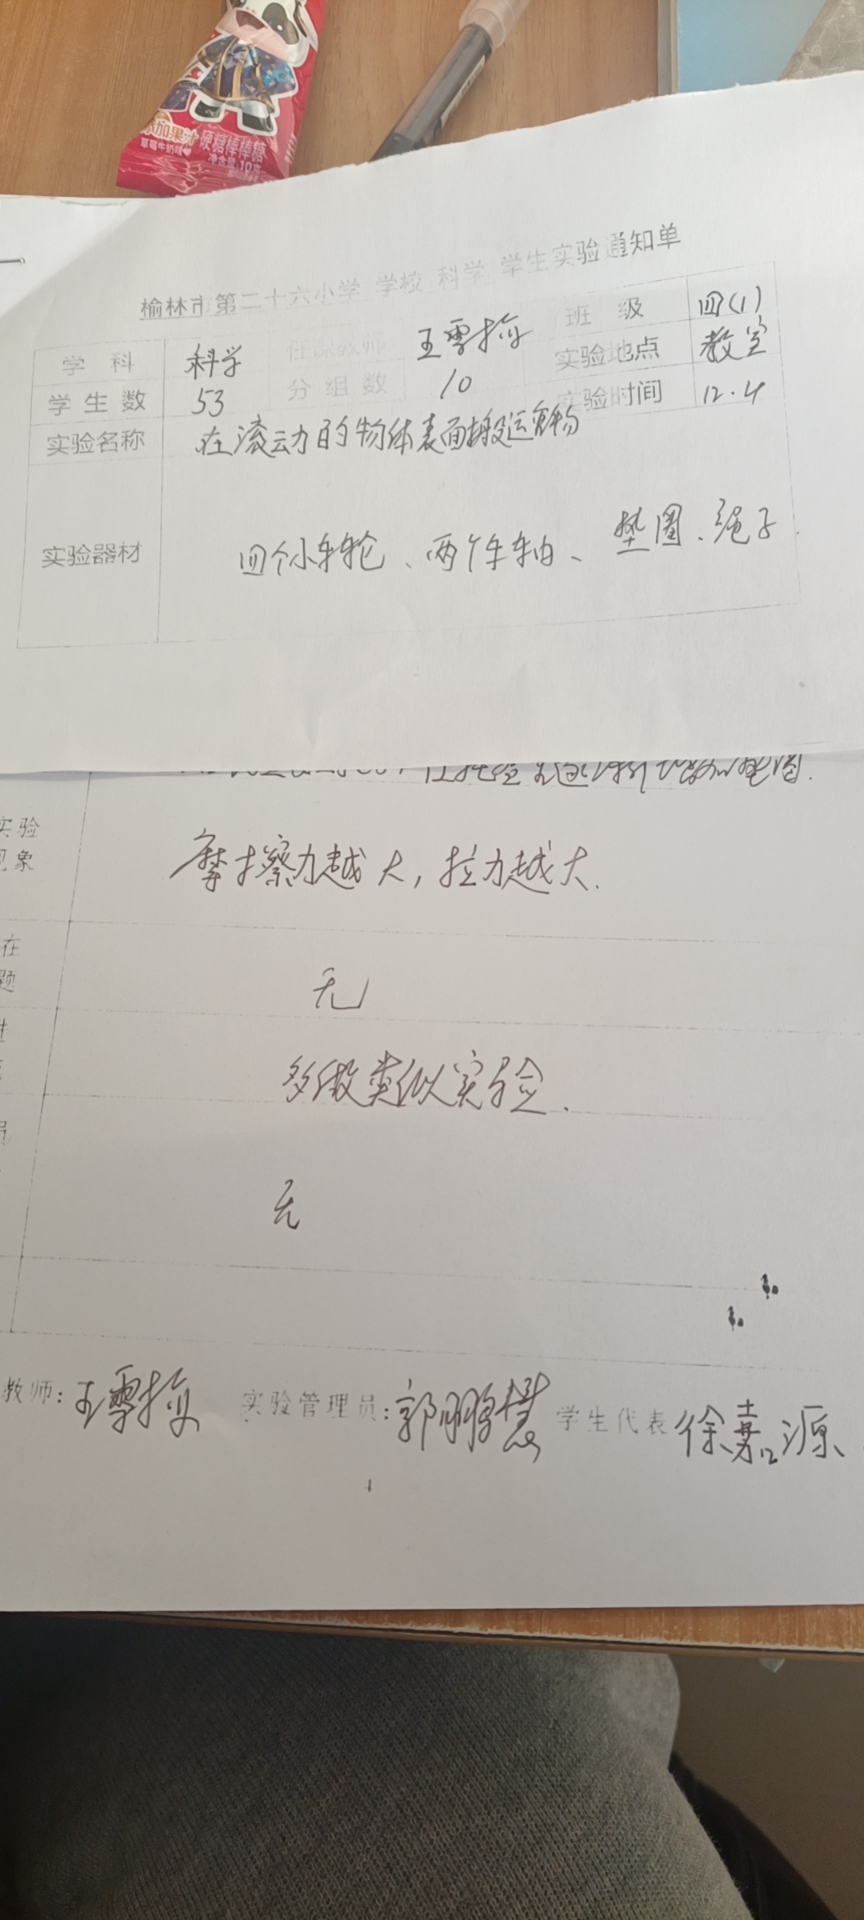 添加果汁 硬糖棒棒糖
草莓牛奶味
净含量:10克
榆林市第二十六小学 学校 科学 学生实验通知单
学科 科学 任课教师 王雪 班级 四(1)
学生数 53 分组数 10 实验地点 教室
实验时间 12.4
实验名称 在滚动的物体表面搬运货物
实验器材 四个小车轮、两个车轴、垫圈、绳子.
实验
现象
摩擦力越大,拉力越大.
在
题
无
多做类似实验.
员
无
教师: 王雪 实验管理员: 郭鹏慧 学生代表 徐嘉源